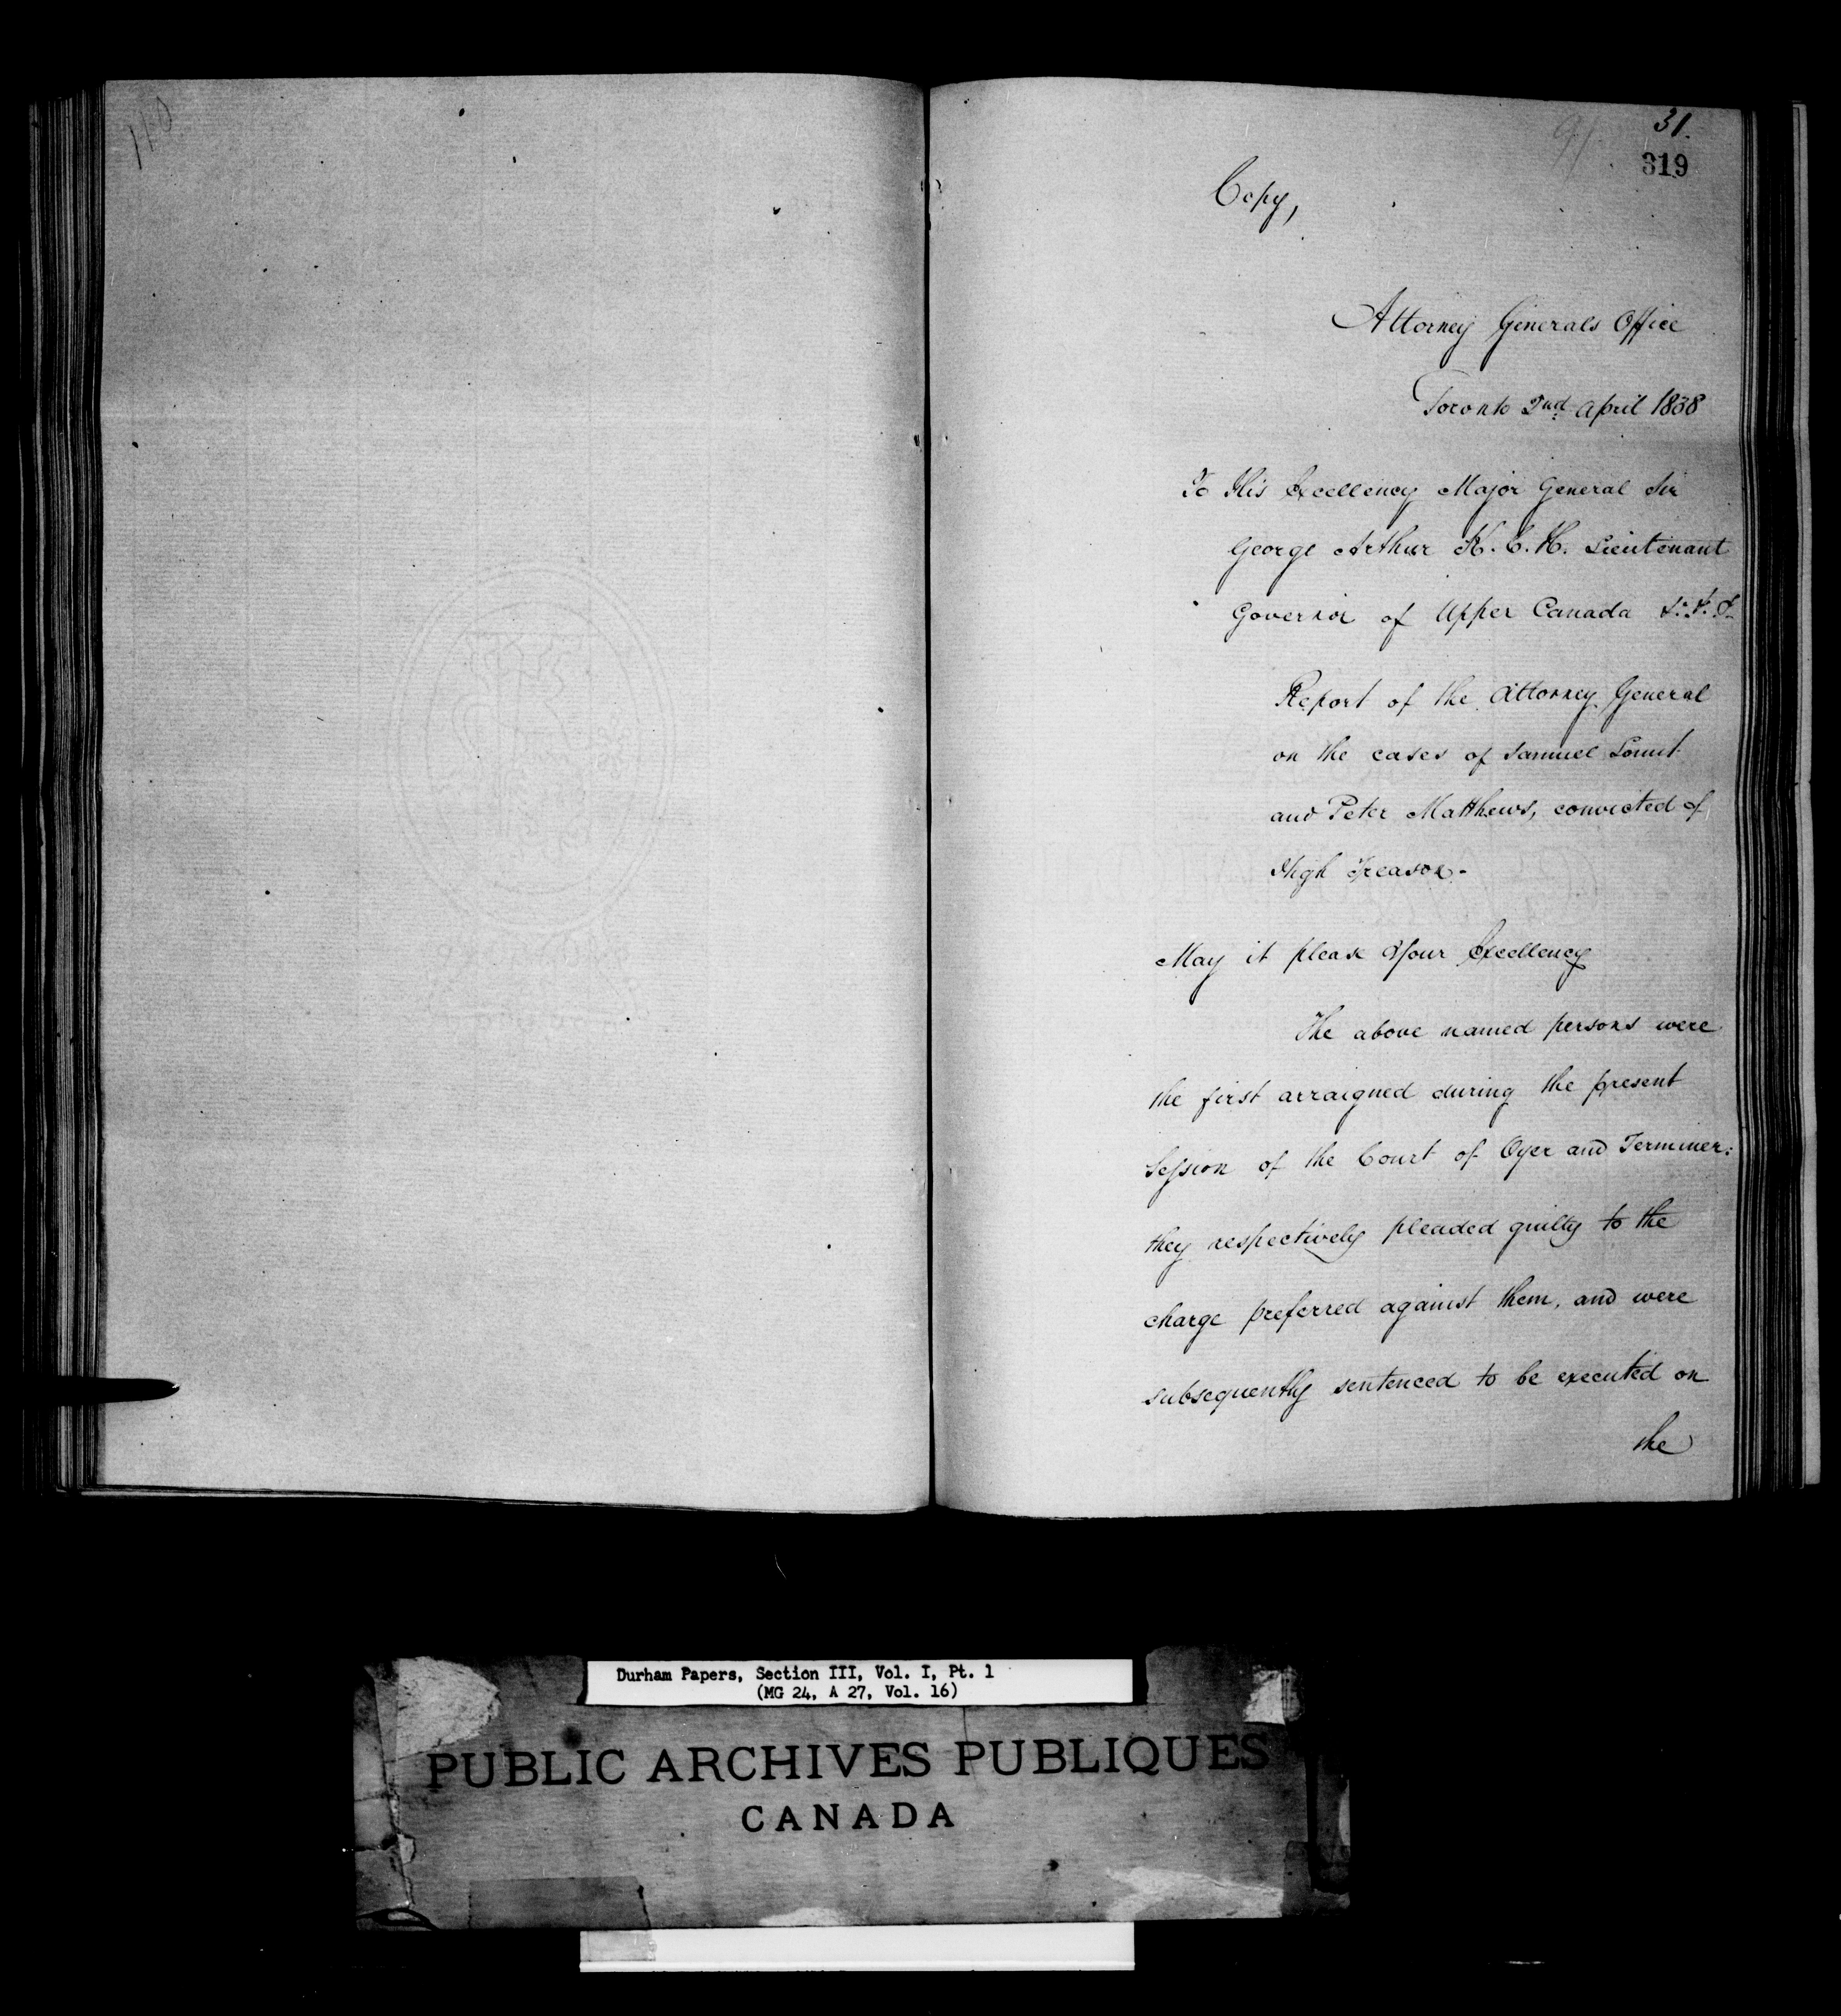 110
91
31.
319
Copy,
Attorney Generals Office
Toronto 2nd April 1838
To His Excellency Major General Sir
George Arthur K.C.H. Lieutenant
Governor of Upper Canada
Report of the Attorney General
on the cases of Samuel Lount
and Peter Matthews, convicted of
High Treason.
May it please Your Excellency
The above named persons were
the first arraigned during the present
Session of the Court of Oyer and Terminer:
they respectively pleaded guilty to the
charge preferred against them, and were
subsequently sentenced to be executed on
the
Durham Papers, Section III, Vol. I, Pt. 1
(MG 24, A 27, Vol. 16)
PUBLIC ARCHIVES PUBLIQUES
CANADA